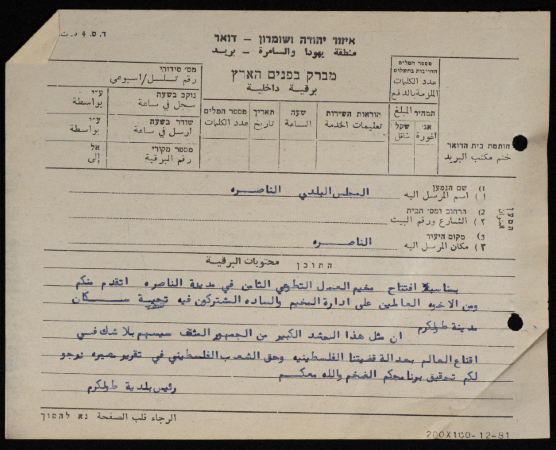 ד.ס. 4
איזור יהודה ושומרון - דואר
منطقة يهودا والسامرة - بريد
מברק בפנים הארץ
برقية داخلية
מס׳ סידורי
رقم تسلسل/اسبوعي
נוקב בשעה
سجل في ساعة
ע״י
بواسطة
שודר בשעה
ارسل في ساعة
ע״י
بواسطة
מספר מקורי
رقم البرقية
אל
إلى
מספר המלים
החייבות בתשלום
عدد الكلمات
الملزمة بالدفع
המחיר المبلغ
אג׳
اغورة
שקל
שאقل
הוראות השירות
تعليمات الخدمة
שעה
الساعة
תאריך
تاريخ
מספר המלים
عدد الكلمات
חותמת בית הדואר
ختم مكتب البريد
המען
العنوان
1) שם הנמען
١) اسم المرسل اليه المجلس البلدي الناصره
2) הרחוב ומס׳ הבית
٢) الشارع ورقم البيت
3) מקום היעד
٣) مكان المرسل اليه الناصره
התוכן محتويات البرقية
بمناسبة افتتاح مخيم العمل التطوعي الثامن في مدينة الناصره اتقدم منكم
ومن الاخوه العاملين على ادارة المخيم والساده المشتركين فيه تحية سكان
مدينة طولكرم
ان مثل هذا الحشد الكبير من الجمهور المثقف سيسهم بلا شك في
اقناع العالم بعدالة قضيتنا الفلسطينيه وحق الشعب الفلسطيني في تقرير مصيره نرجو
لكم تحقيق برنامجكم الضخم والله معكم
رئيس بلدية طولكرم
الرجاء قلب الصفحة נא להפוך
200X100-12-81